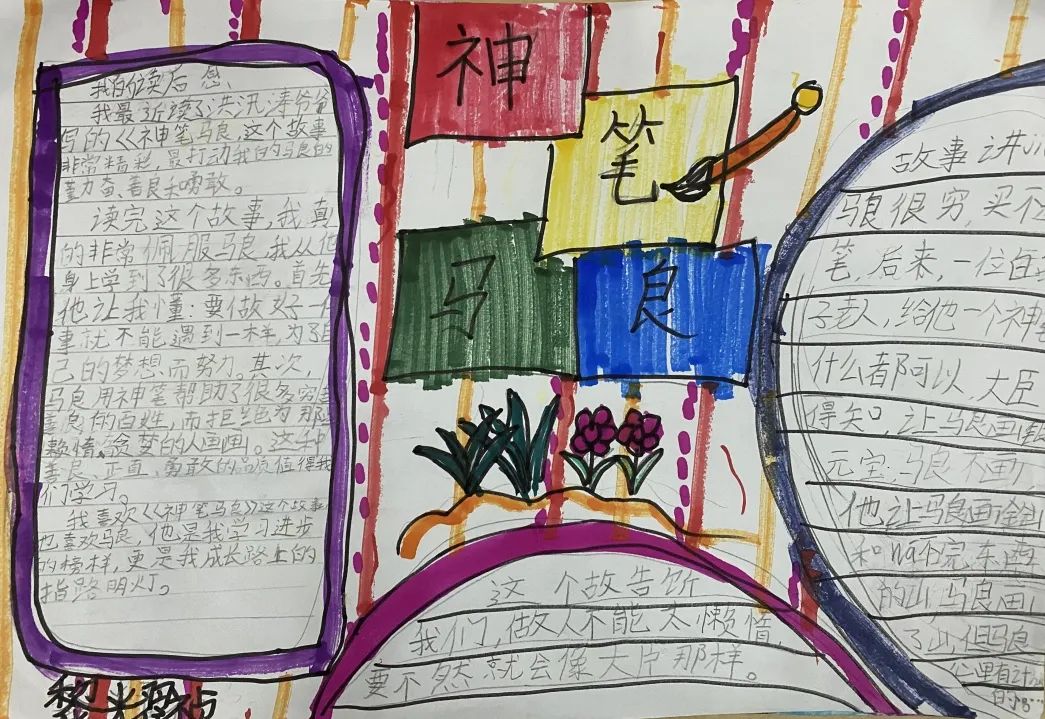 神
笔
马
良
我的读后感
我最近读了洪汛涛爷爷
写的《神笔马良,这个故事
非常精彩,最打动我的马良的
勤奋、善良和勇敢。
读完这个故事,我真
的非常佩服马良,我从他
身上学到了很多东西。首先
他让我懂:要做好一
事就不能遇到一样,为了自
己的梦想而努力。其次,
马良用神笔帮助了很多穷
善良的百姓,而拒绝为那
懒惰、贪婪的人画画。这种
善良、正直、勇敢的品质值得我
们学习。
我喜欢《神笔马良》这个故事
也喜欢马良,他是我学习进步
的榜样,更是我成长路上的
指路明灯。
这个故告饰
我们,做人不能太懒惰,
要不然就会像大臣那样。
故事讲
马良很穷,买不
笔,后来,一位白
子老人,给他一个神
什么者都可以,大臣
得知口,让马良画
元宝.马良不画,
他让马良画金山
和 na不完东西
的山马良画
了山但马良
心里有
的